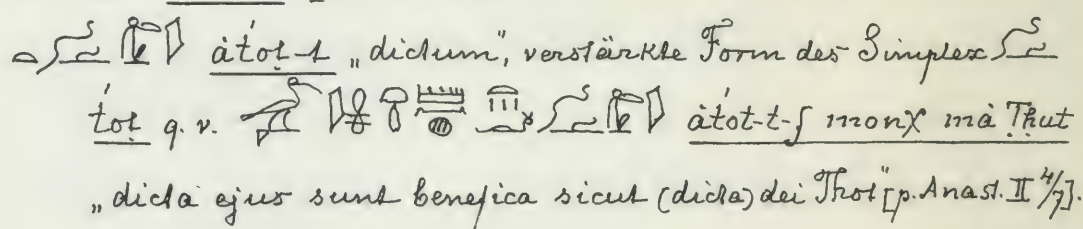 átot-t „dictum“, verstärkte Form des Simplex
tot q. v. átot-t-f monχ má Thut
„dicta ejus sunt benefica sicut (dicta) dei Thot“ [p. Anast. II 4/7].